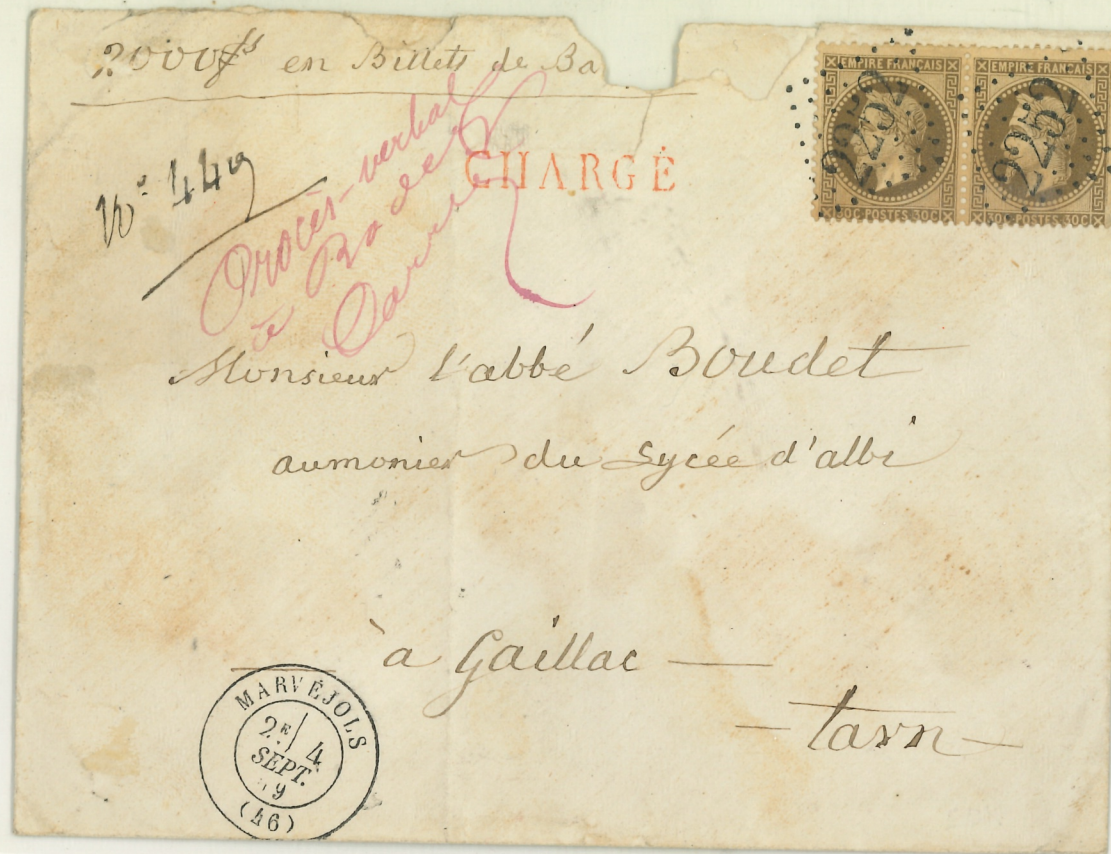 2000fs en Billets de Ba
N° 449
Procès-verbal
à Rodez
CHARGÉ
EMPIRE FRANÇAIS
2252
30C POSTES 30C
EMPIRE FRANÇAIS
2252
30C POSTES 30C
Monsieur l'abbé Boudet
aumonier du Lycée d'albi
à Gaillac
tarn
MARVÉJOLS
2E 4
SEPT.
9
(46)